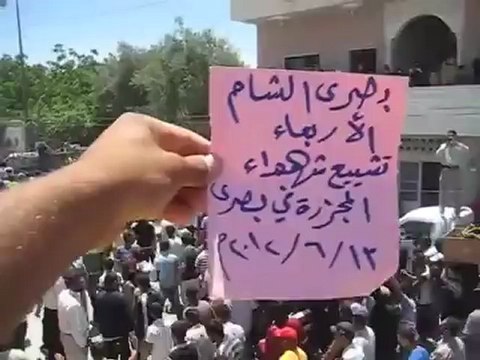 بصرى الشام
الأربعاء
تشييع شهداء
المجزرة في بصرى
١٣/٦/٢٠١٢م